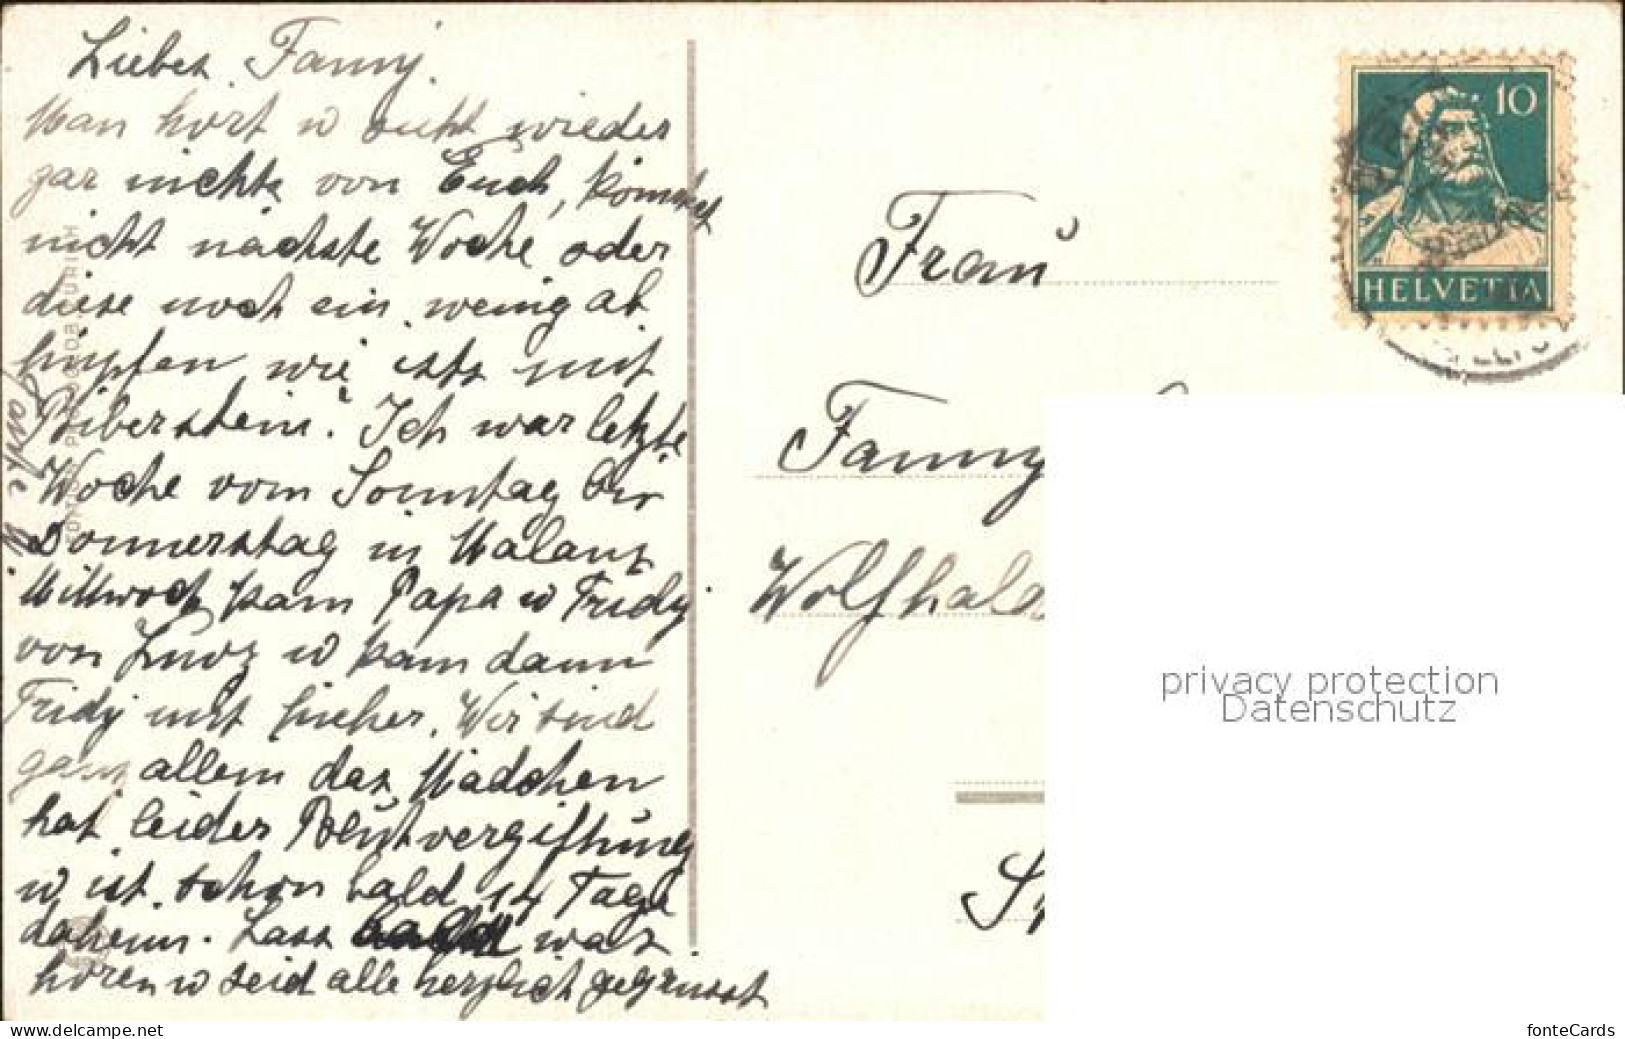 Liebes Fanny.
Man hört u sieht wieder
gar nichts von Euch, kommst
nicht nächste Woche oder
diese noch ein wenig ab
hüpfen, wie ists mit
Biberstein? Ich war letzte
Woche vom Sonntag bis
Donnerstag in Malans
Mittwoch kam Papa u Fridy
von u kam dann
Fridy mit hieher. Wir sind
ganz allein das Mädchen
hat leider Blutvergiftung
u ist schon bald 14 Tage
daheim. Lass was
hören u seid alle herzlich gegrüsst
Frau
Fanny
Wolfhald
10
HELVETIA
privacy protection
Datenschutz
www.delcampe.net
fonteCards